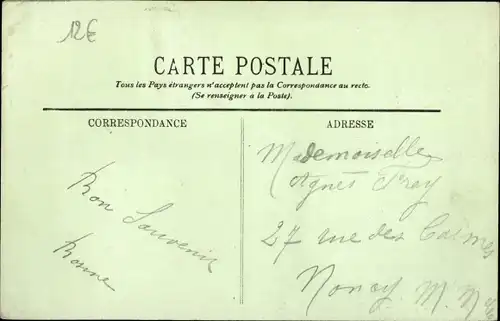 12€
CARTE POSTALE
Tous les Pays étrangers n'acceptent pas la Correspondance au recto.
(Se renseigner à la Poste).
CORRESPONDANCE
Bon Souvenir
ADRESSE
Mademoiselle
Agnès Frey
27 rue des
Nancy. M.